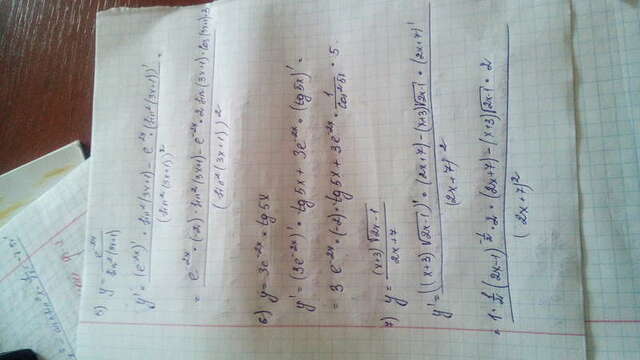 5) y = e^-2x / sin²(3x+1)
y' = ((e^-2x)' * sin²(3x+1) - e^-2x * (sin²(3x+1))') / (sin²(3x+1))² =
= (e^-2x * (-2) * sin²(3x+1) - e^-2x * 2 sin(3x+1) * cos(3x+1) * 3) / (sin²(3x+1))²
6) y = 3e^-2x * tg5x
y' = (3e^-2x)' * tg5x + 3e^-2x * (tg5x)' =
= 3e^-2x * (-2) * tg5x + 3e^-2x * 1/cos²5x * 5.
7) y = (x+3)√2x-1 / 2x+7
y' = ((x+3)√2x-1)' * (2x+7) - (x+3)√2x-1 * (2x+7)' / (2x+7)²
= 1 * 1/2 (2x-1)^-1/2 * 2 * (2x+7) - (x+3)√2x-1 * 2 / (2x+7)²